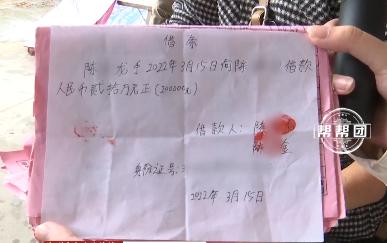 借条
陈 龙于2022年3月15日向陈 借款
人民币贰拾万元正(200000元)
借款人:陈
陈 金
身份证号:
2022年 3月15日
帮帮团